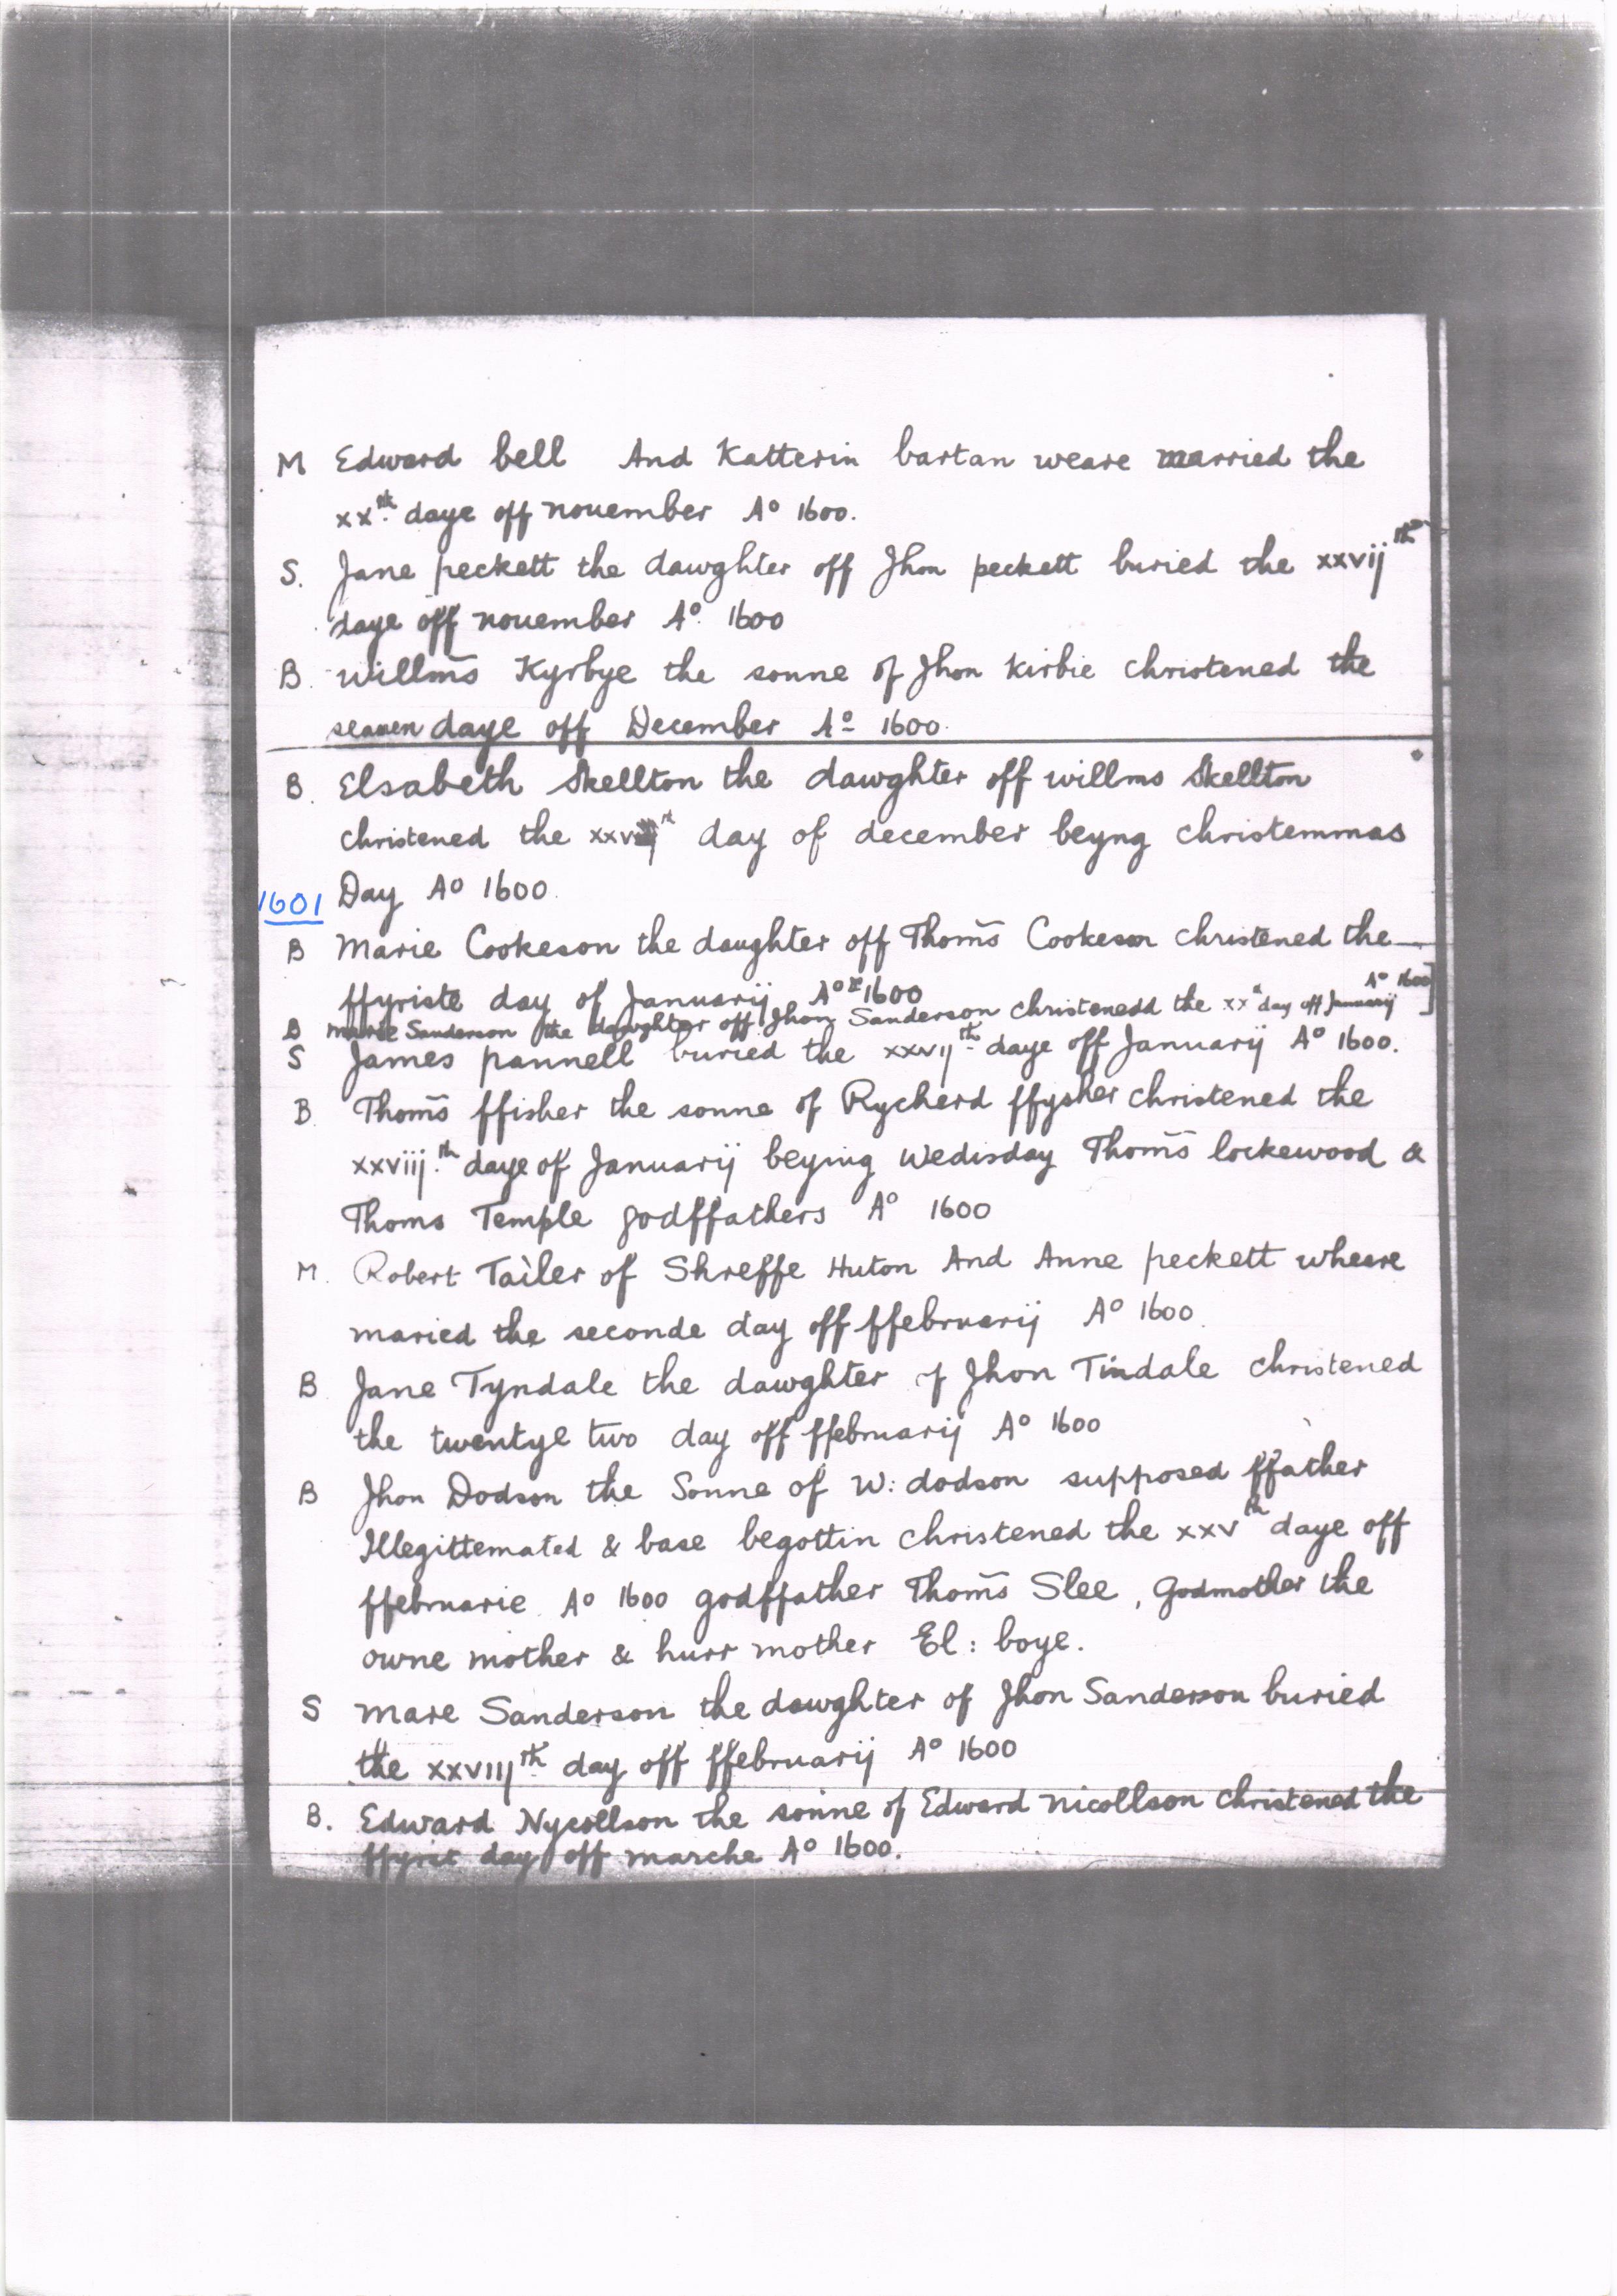 M Edward bell And Katterin bartan weare married the
xxth daye off nouember Ao 1600.
S. Jane peckett the dawghter off Jhon peckett buried the xxvijth
daye off nouember Ao 1600
B. willms Kyrbye the sonne of Jhon Kirbie christened the
seauen daye off December Ao 1600.
B. Elsabeth Skellton the dawghter off willms Skellton
christened the day of december beyng christemmas
Day Ao 1600.
1601
B Marie Cookeson the daughter off Thoms Cookeson christened the
ffyriste day of Januarij Ao 1600
B marie Sanderson the dawghter off Jhon Sanderson christenedd the xxth day off Januarij Ao 1600]
S James pannell buried the xxvijth daye off Januarij Ao 1600.
B. Thoms ffisher the sonne of Rycherd ffysher christened the
xxviij.th daye of Januarij beying Wedisday Thoms lockewood &
Thoms Temple godffathers Ao 1600
M. Robert Tailer of Shreffe Huton And Anne peckett wheare
maried the seconde day off ffebruarij Ao 1600.
B Jane Tyndale the dawghter of Jhon Tindale christened
the twentye two day off ffebruarij Ao 1600
B Jhon Dodson the Sonne of W: dodson supposed ffather
Illegittemated & base begottin christened the xxvth daye off
ffebruarie Ao 1600 godffather Thoms Slee, Godmother the
owne mother & hurr mother El: boye.
S mare Sanderson the dawghter of Jhon Sanderson buried
the xxviijth day off ffebruarij Ao 1600
B. Edward Nycollson the sonne of Edward nicollson christened the
ffyrst day off marche Ao 1600.